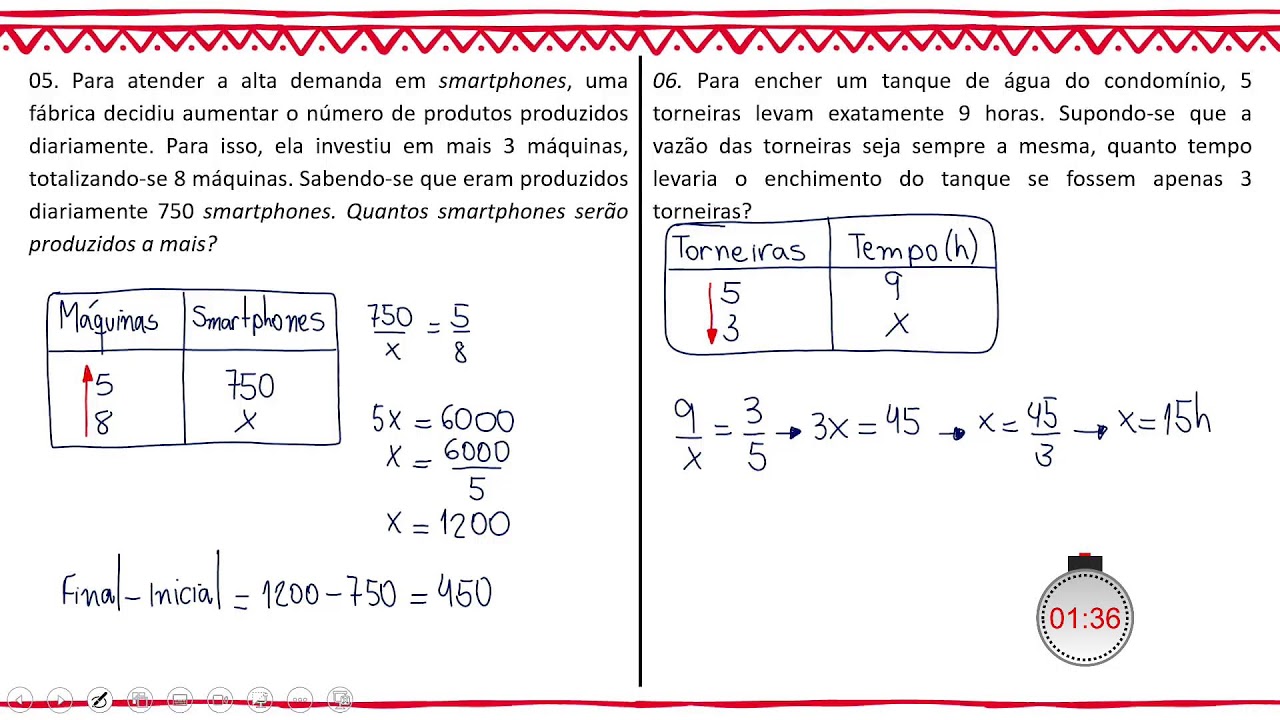 05. Para atender a alta demanda em smartphones, uma
fábrica decidiu aumentar o número de produtos produzidos
diariamente. Para isso, ela investiu em mais 3 máquinas,
totalizando-se 8 máquinas. Sabendo-se que eram produzidos
diariamente 750 smartphones. Quantos smartphones serão
produzidos a mais?
Máquinas Smartphones
5 750
8 x
750/x = 5/8
5x = 6000
x = 6000/5
x = 1200
Final - Inicial = 1200 - 750 = 450
06. Para encher um tanque de água do condomínio, 5
torneiras levam exatamente 9 horas. Supondo-se que a
vazão das torneiras seja sempre a mesma, quanto tempo
levaria o enchimento do tanque se fossem apenas 3
torneiras?
Torneiras Tempo (h)
5 9
3 x
9/x = 3/5 → 3x = 45 → x = 45/3 → x = 15h
01:36